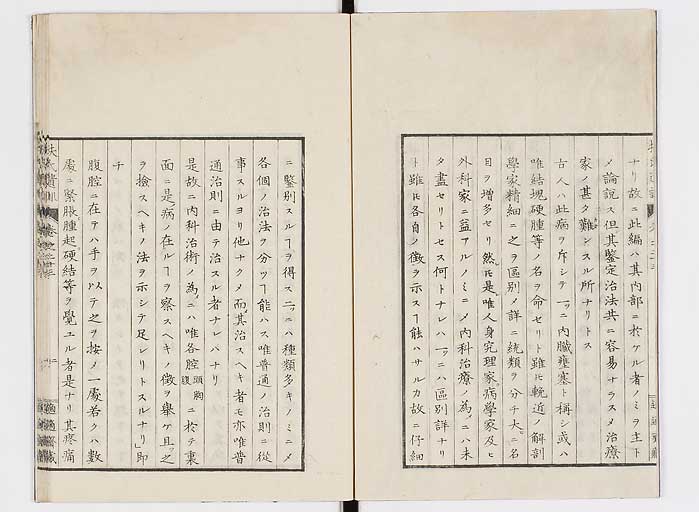 ナリ故ニ此編ハ其内部ニ於ケル者ノミヲ主ト
メ論説ス但其鑒定治法共ニ容易ナラスメ治療
家ノ甚タ難ンスル所ナリトス
古人ハ此病ヲ斥シテ一ニ内臓壅塞ト稱シ或ハ
唯結塊硬腫等ノ名ヲ命セリト雖𪜈輓近ノ解剖
學家精細ニ之ヲ區別メ詳ニ統類ヲ分チ大ニ名
目ヲ増多セリ然𪜈是唯人身究理家病學家及ヒ
外科家ニ益アルノミニメ内科治療ノ為ニハ未
タ盡セリトセス何トナレハ一ニハ區別詳ナリ
ト雖𪜈各自ノ徴ヲ示スヿ能ハサルカ故ニ仔細
ニ鑒別スルヿヲ得ス二ニハ種類多キノミニメ
各個ノ治法ヲ分ツヿ能ハス唯普通ノ治則ニ從
事スルヨリ他ナクメ而其治スヘキ者モ亦唯普
通治則ニ由テ治スル者ナレハナリ
是故ニ内科治術ノ為ニハ唯各腔頭胸腹ニ於テ裏
面ニ是病ノ在ルヿヲ察スヘキノ徴ヲ擧ケ且之
ヲ撿スヘキノ法ヲ示シテ足レリトスルナリ即
チ
腹腔ニ在テハ手ヲ以テ之ヲ按メ一處若クハ數
處ニ緊脹腫起硬結等ヲ覺エル者是ナリ其疼痛